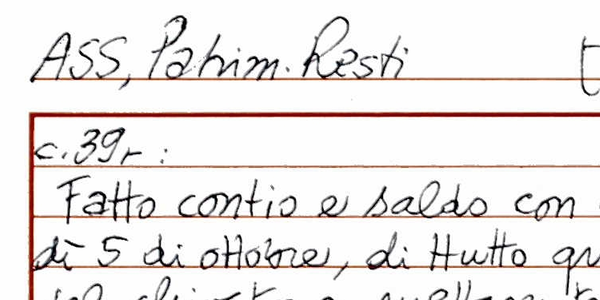 ASS, Patrim. Resti
c. 39r :
Fatto contio e saldo con
dì 5 di ottobre, di tutto